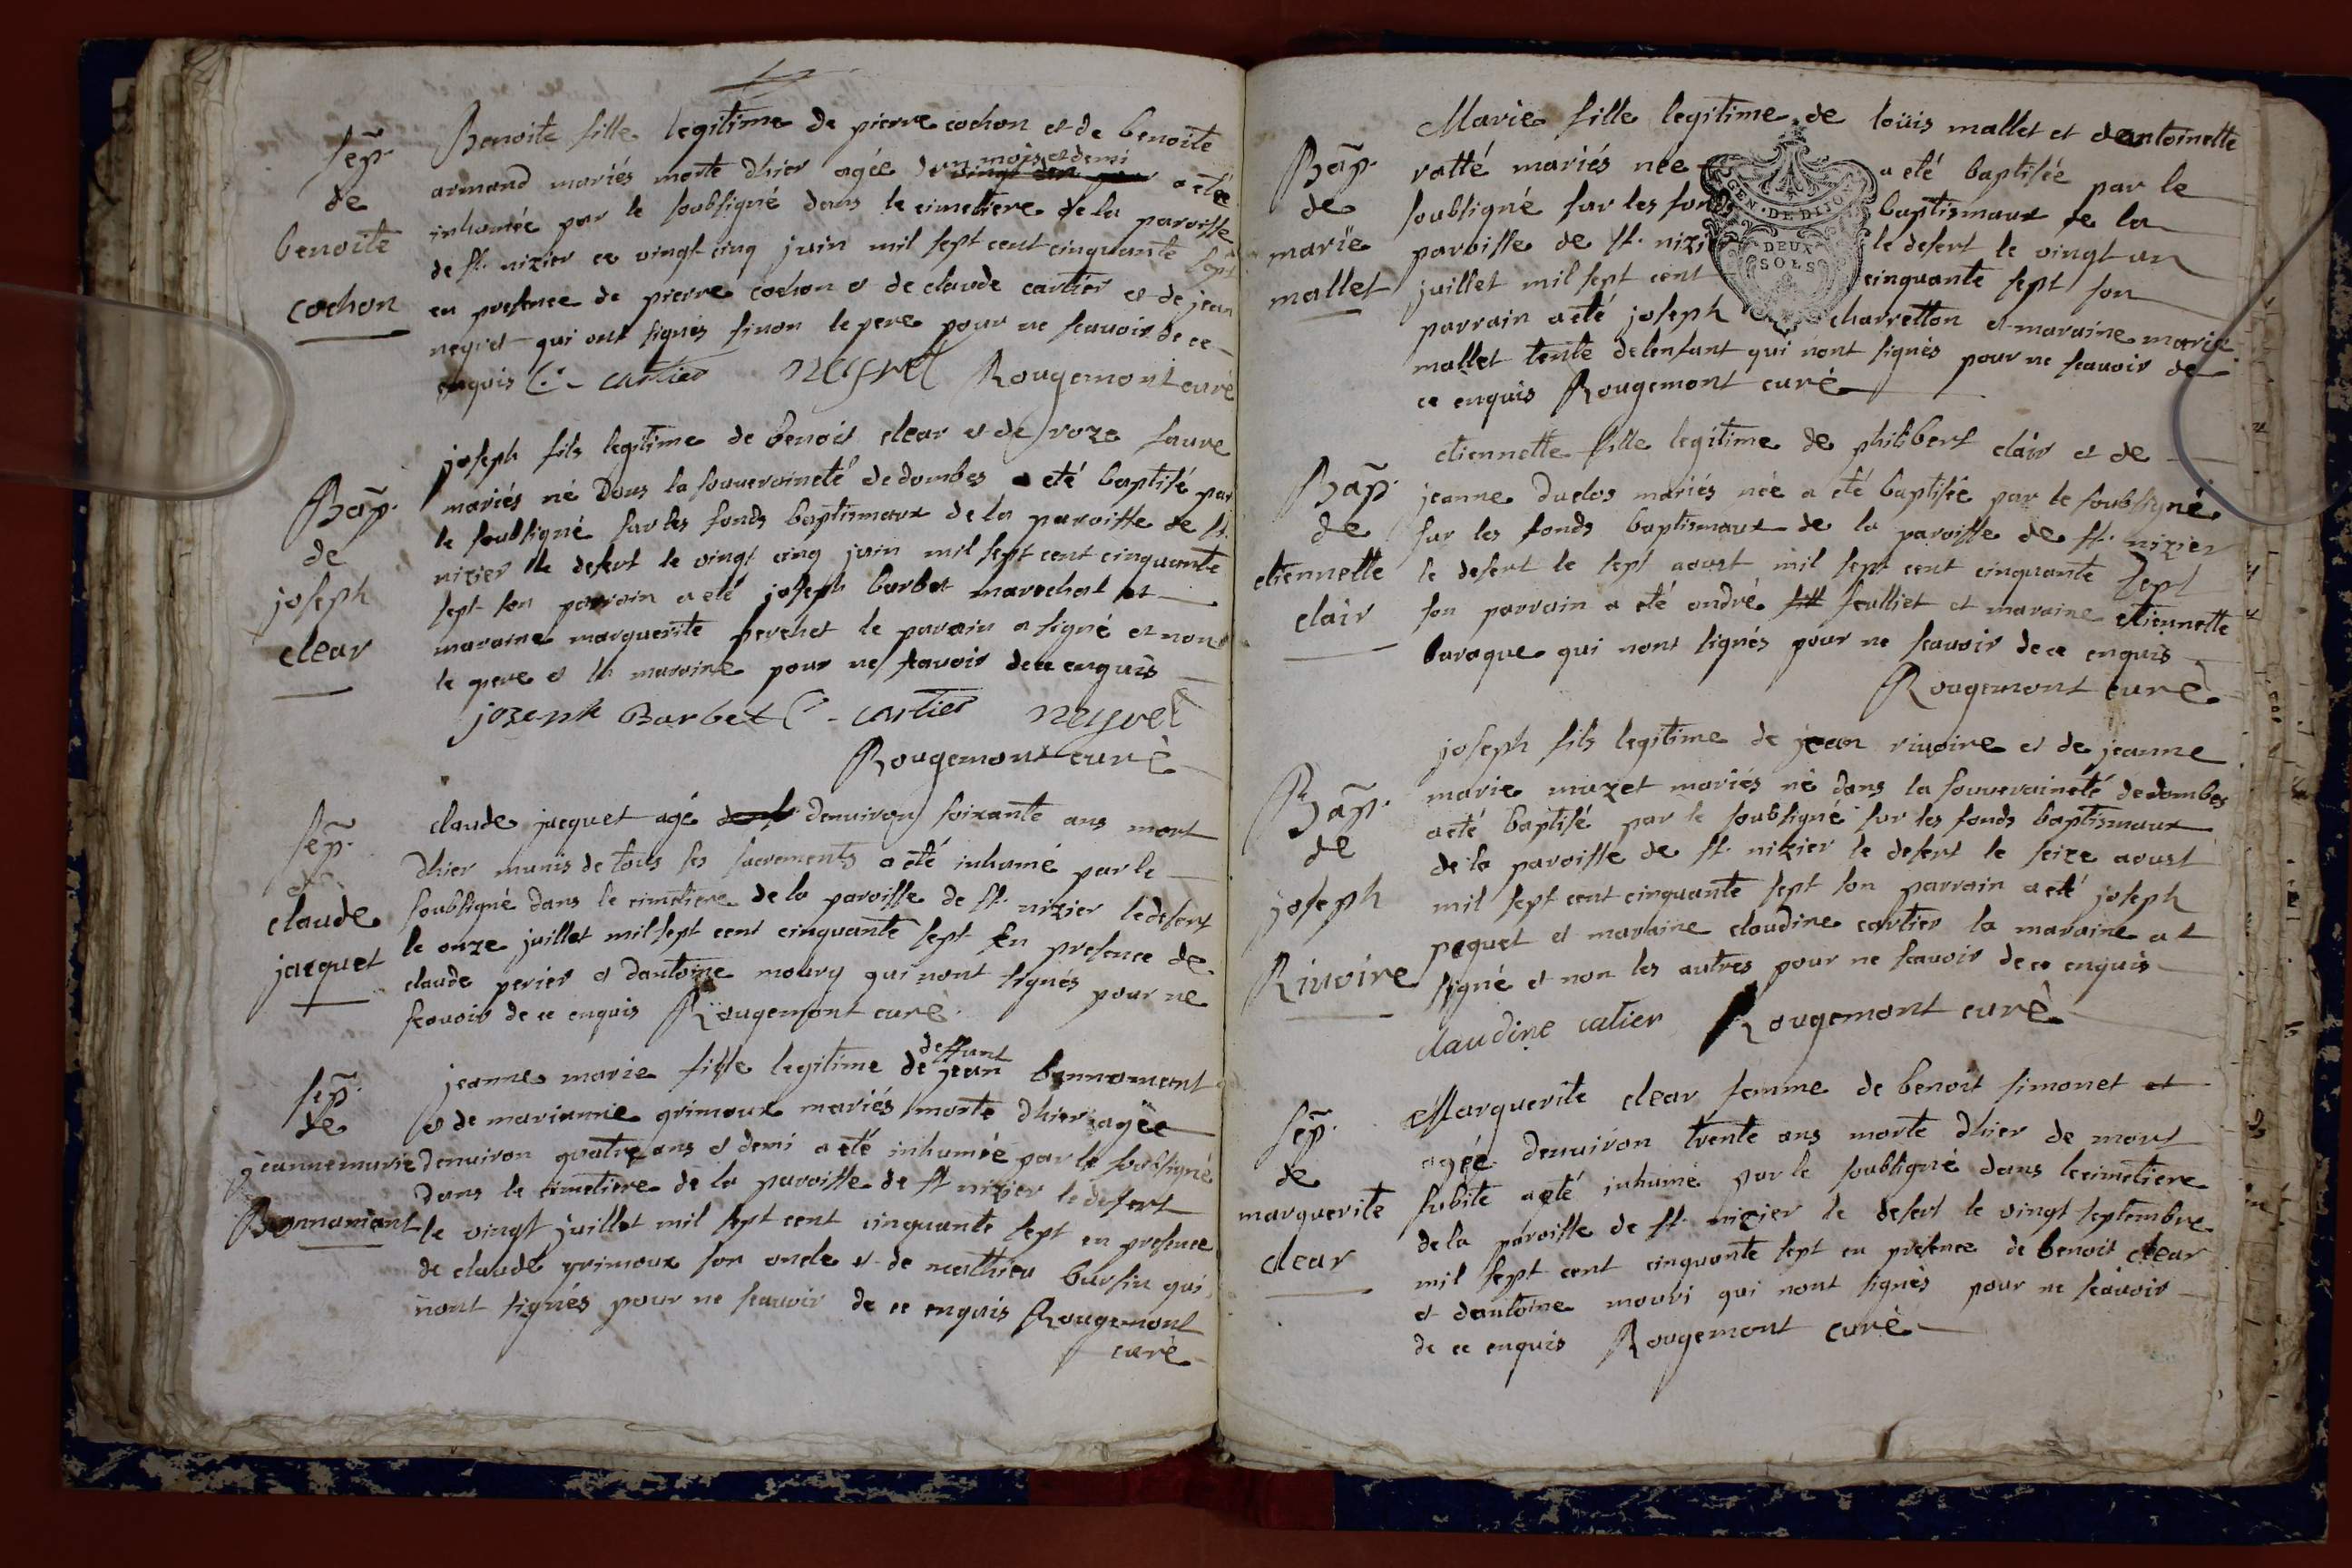 Sep.
de
benoite
cochon
Benoite fille legitime de pierre cochon et de benoite
armand mariés morte dhier agée d un mois et demi a eté
inhumée par le soubsigné dans le cimetiere de la paroisse
de st. nizier ce vingt cinq juin mil sept cent cinquante sept
en presence de pierre cochon et de claude cartier et de jean
neyret qui ont signés sinon le pere pour ne scavoir de ce
enquis C. cartier neyret Rougemont curé
Bap.
de
joseph
clear
joseph fils legitime de benoit clear et de roze faure
mariés né Dans la souveraineté de dombes a eté baptisé par
le soubsigné sur les fonds baptismaux de la paroisse de st.
nizier le desert le vingt cinq juin mil sept cent cinquante
sept son parrain a eté joseph barbet marechal et
maraine marguerite perchet le parain a signé et non
le pere et la maraine pour ne scavoir de ce enquis
jozenph Barbet C. cartier neyret
Rougemont curé
Sep.
de
claude
jacquet
claude jacquet agé denuiron soixante ans mort
dhier munis de tous ses sacrements a eté inhumé par le
soubsigné dans le cimetiere de la paroisse de st. nizier le desert
le onze juillet mil sept cent cinquante sept en presence de
claude perier et dantoine moury qui nont signés pour ne
scavoir de ce enquis Rougemont curé
Sep.
de
jeanne marie
Bonnamant
jeanne marie fille legitime de deffunt jean bonnamant
et de marianne grimoux mariés morte dhier agée
denuiron quatre ans et demi a eté inhumée par le soubsigné
dans le cimetiere de la paroisse de st nizier le desert
le vingt juillet mil sept cent cinquante sept en presence
de claude grimoux son oncle et de mathieu bursin qui
nont signés pour ne scavoir de ce enquis Rougemont
curé
Bap.
de
marie
mallet
Marie fille legitime de loüis mallet et dantoinette
ratté mariés née a eté baptisée par le
soubsigné sur les fonds baptismaux de la
paroisse de st. nizier le desert le vingt un
juillet mil sept cent cinquante sept son
parrain a eté joseph charretton et maraine marie
mallet tente de lenfant qui nont signés pour ne scavoir de
ce enquis Rougemont curé
GEN. DE DIJON
DEUX
SOLS
Bap.
de
etiennette
clair
etiennette fille legitime de philibert clair et de
jeanne duclos mariés née a eté baptisée par le soubsigné
sur les fonds baptismaux de la paroisse de st. nizier
le desert le sept aoust mil sept cent cinquante sept
son parrain a eté andré feulliet et maraine etiennette
baraque qui nont signés pour ne scavoir de ce enquis
Rougemont curé
Bap.
de
joseph
Rivoire
joseph fils legitime de jean rivoire et de jeanne
marie muzet mariés né dans la souveraineté de dombes
a eté baptisé par le soubsigné sur les fonds baptismaux
de la paroisse de st. nizier le desert le seize aoust
mil sept cent cinquante sept son parrain a eté joseph
paquet et maraine claudine cartier la maraine at
signé et non les autres pour ne scavoir de ce enquis
claudine catier Rougemont curé
Sep.
de
marguerite
clear
Marguerite clear femme de benoit simonet et
agée denuiron trente ans morte dhier de mort
subite a eté inhumé par le soubsigné dans le cimetiere
de la paroisse de st. nizier le desert le vingt septembre
mil sept cent cinquante sept en présence de benoit clear
et dantoine mouri qui nont signés pour ne scavoir
de ce enquis Rougemont curé